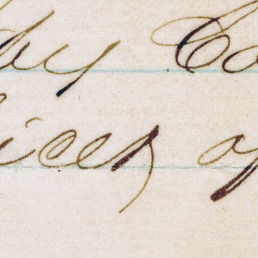 by Co
ices of